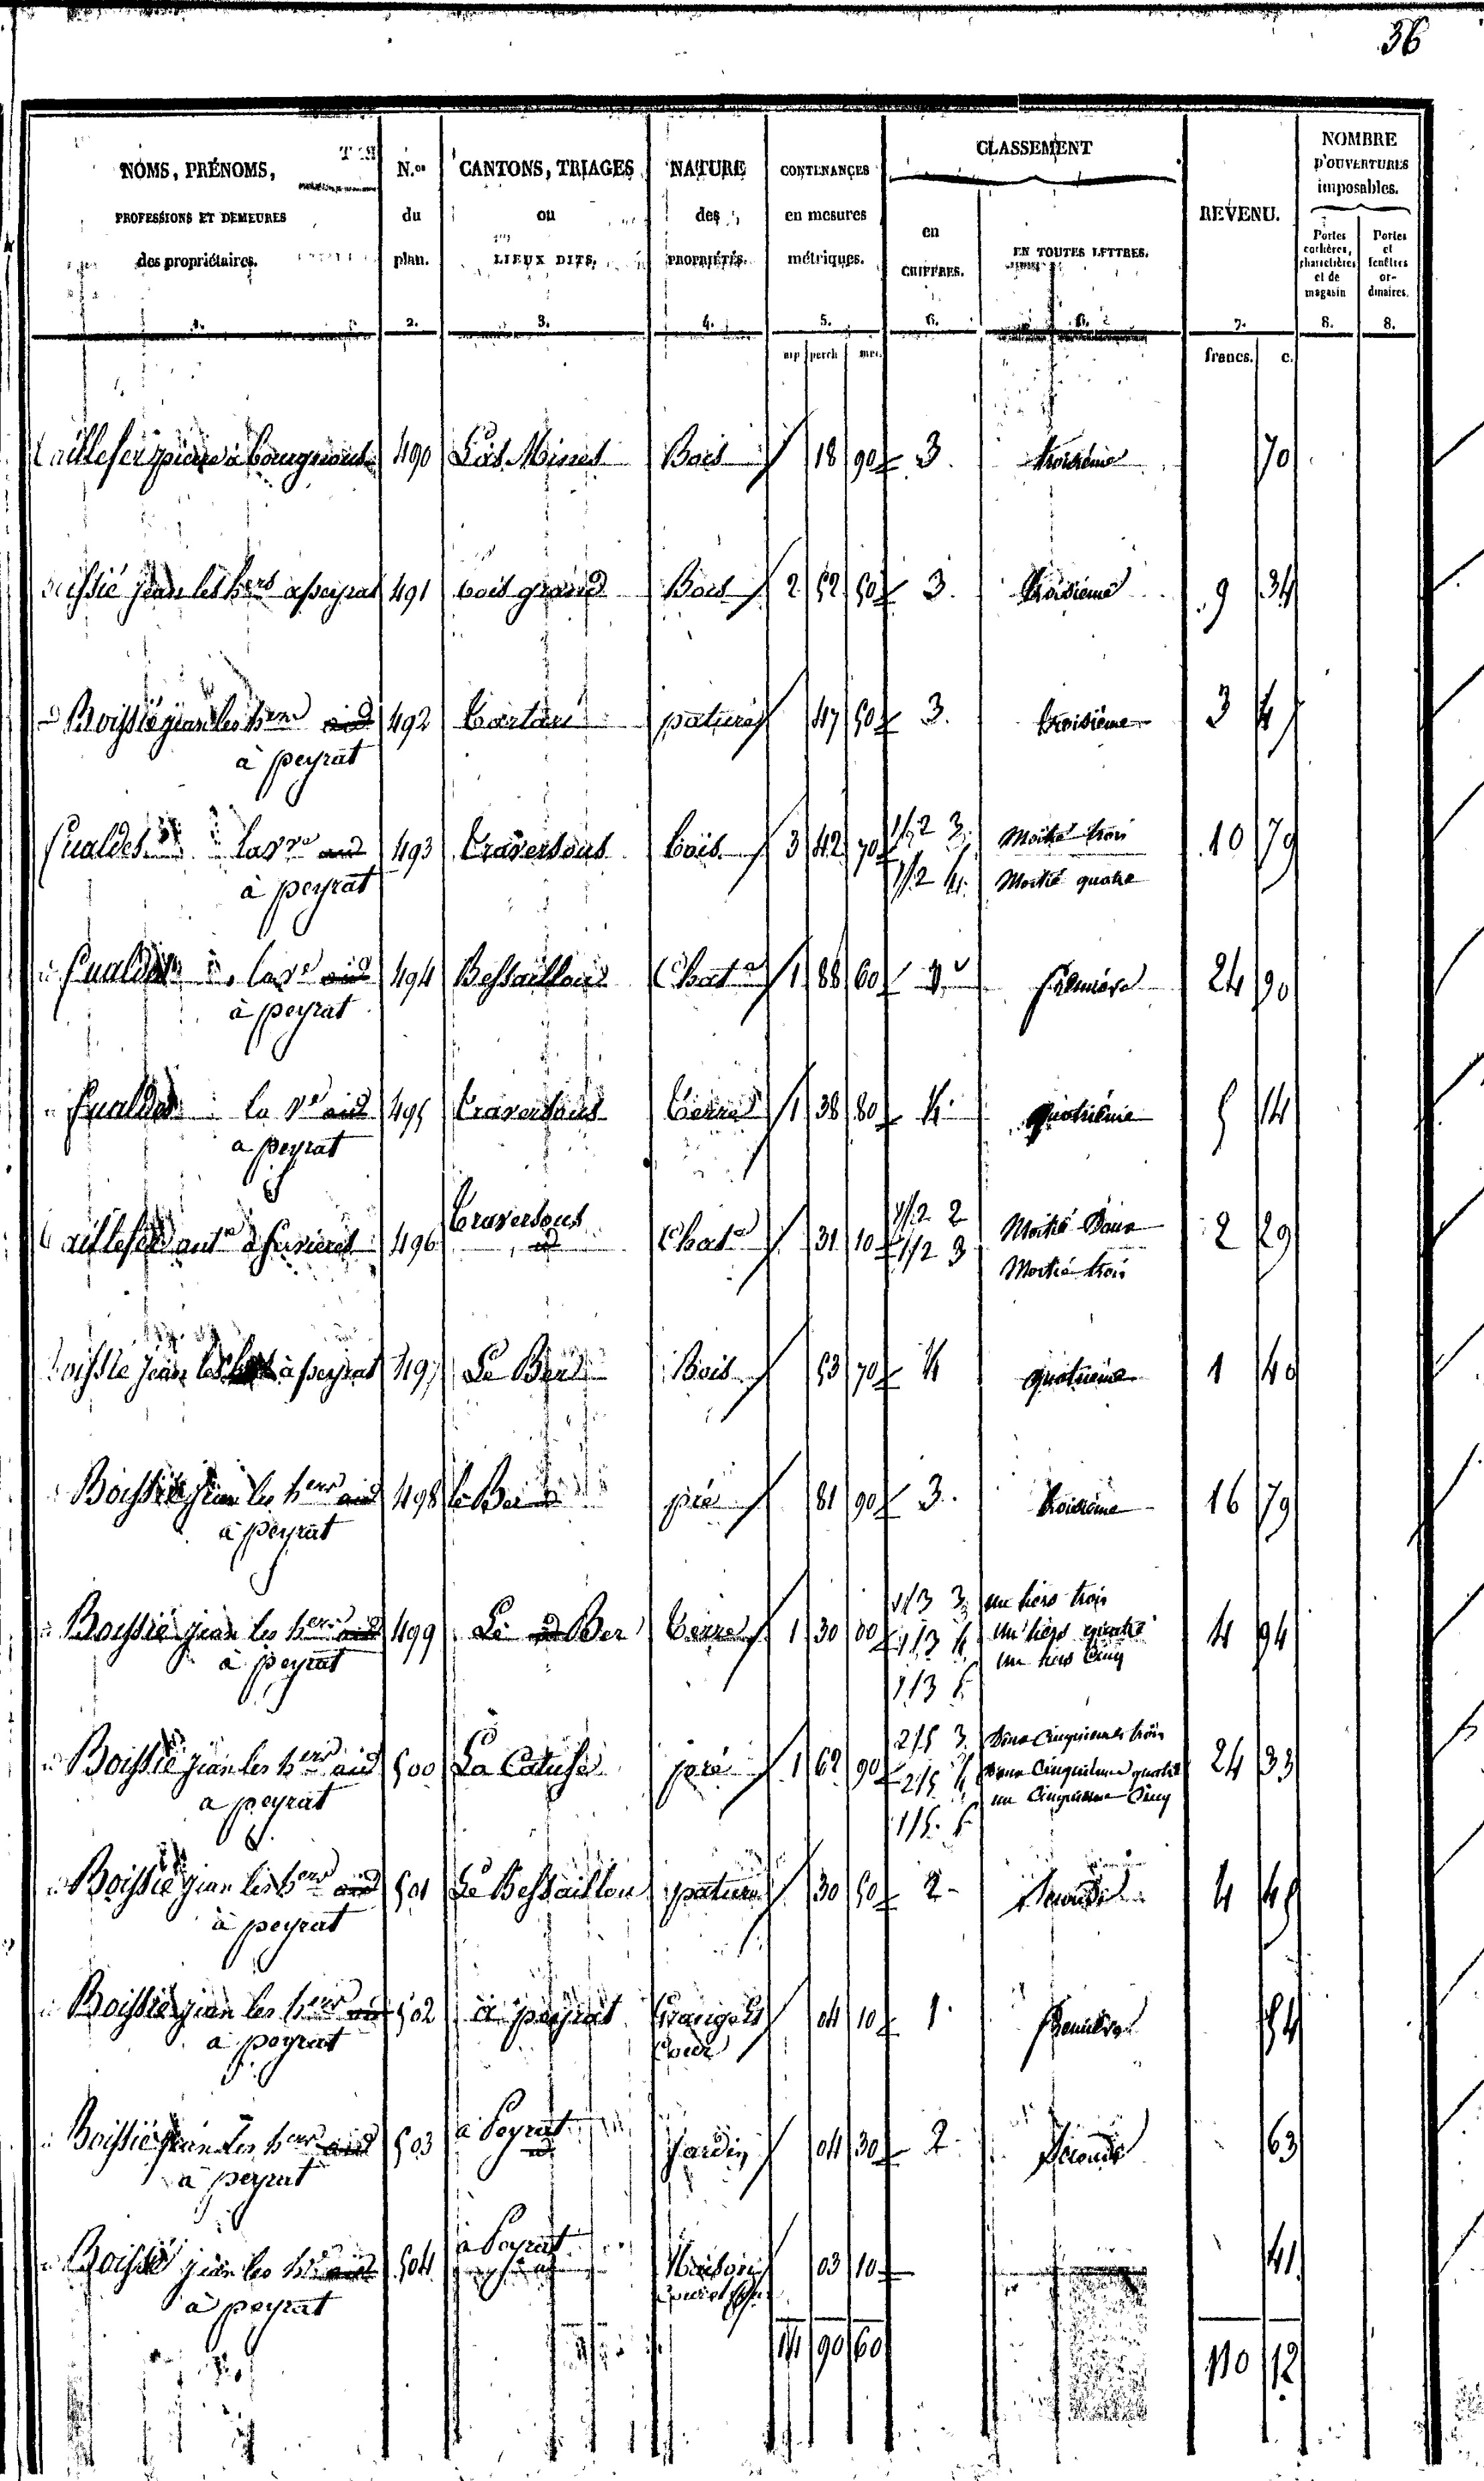 36
NOMS, PRÉNOMS, PROFESSIONS ET DEMEURES des propriétaires. 1.
N.os du plan. 2.
CANTONS, TRIAGES ou LIEUX DITS. 3.
NATURE des PROPRIÉTÉS. 4.
CONTENANCES en mesures métriques. 5.
CLASSEMENT
en CHIFFRES. 6.
EN TOUTES LETTRES. 6.
REVENU. 7.
NOMBRE D'OUVERTURES imposables.
Portes cochères, charretières et de magasin 8.
Portes et fenêtres ordinaires. 8.
arp perch met. francs. c.
490 Las Bois 18 90 3. troisième 70
jean les hers a peyrat 491 bois grand Bois 2 52 50 3. troisième 9 34
Boissié jean les hers aid 492 pature 47 50 3. troisième 3 47
à peyrat
Cualdes la ve aid 493 Traversous bois 3 42 70 1/2 3 Moitié trois 10 79
à peyrat 1/2 4 Moitié quatre
Cualdes la ve aid 494 Bessaillou Chat 1 88 60 1 première 24 90
à peyrat
Cualdes la ve aid 495 Traversous terre 1 38 80 4 quatrième 5 14
a peyrat
496 Traversous id Chat 31 10 1/2 2 Moitié Deux 2 29
1/2 3 Moitié trois
jean les à peyrat 497 Le Ber Bois 53 70 4 quatrième 1 40
Boissié jean les hers aid 498 le Ber pré 81 90 3. troisième 16 79
à peyrat
Boissié jean les hers aid 499 Le Ber terre 1 30 00 1/3 3 un tiers trois 4 94
à peyrat 1/3 4 un tiers quatre
1/3 5 un tiers Cinq
Boissié jean les hers aid 500 La pré 1 62 90 2/5 3 Deux Cinquièmes trois 24 33
a peyrat 2/5 4 Deux Cinquièmes quatre
1/5 5 un Cinquième Cinq
Boissié jean les hers aid 501 Le Bessaillou pature 30 50 2 Seconde 4 45
à peyrat
Boissié jean les hers aid 502 à peyrat Grange et 04 10 1 première 54
a peyrat Cour
Boissié jean les hers aid 503 a Peyrat id Jardin 04 30 2 Seconde 63
à peyrat
Boissié jean les hers aid 504 a Peyrat Maison 03 10 41
a peyrat
14 90 60 110 12